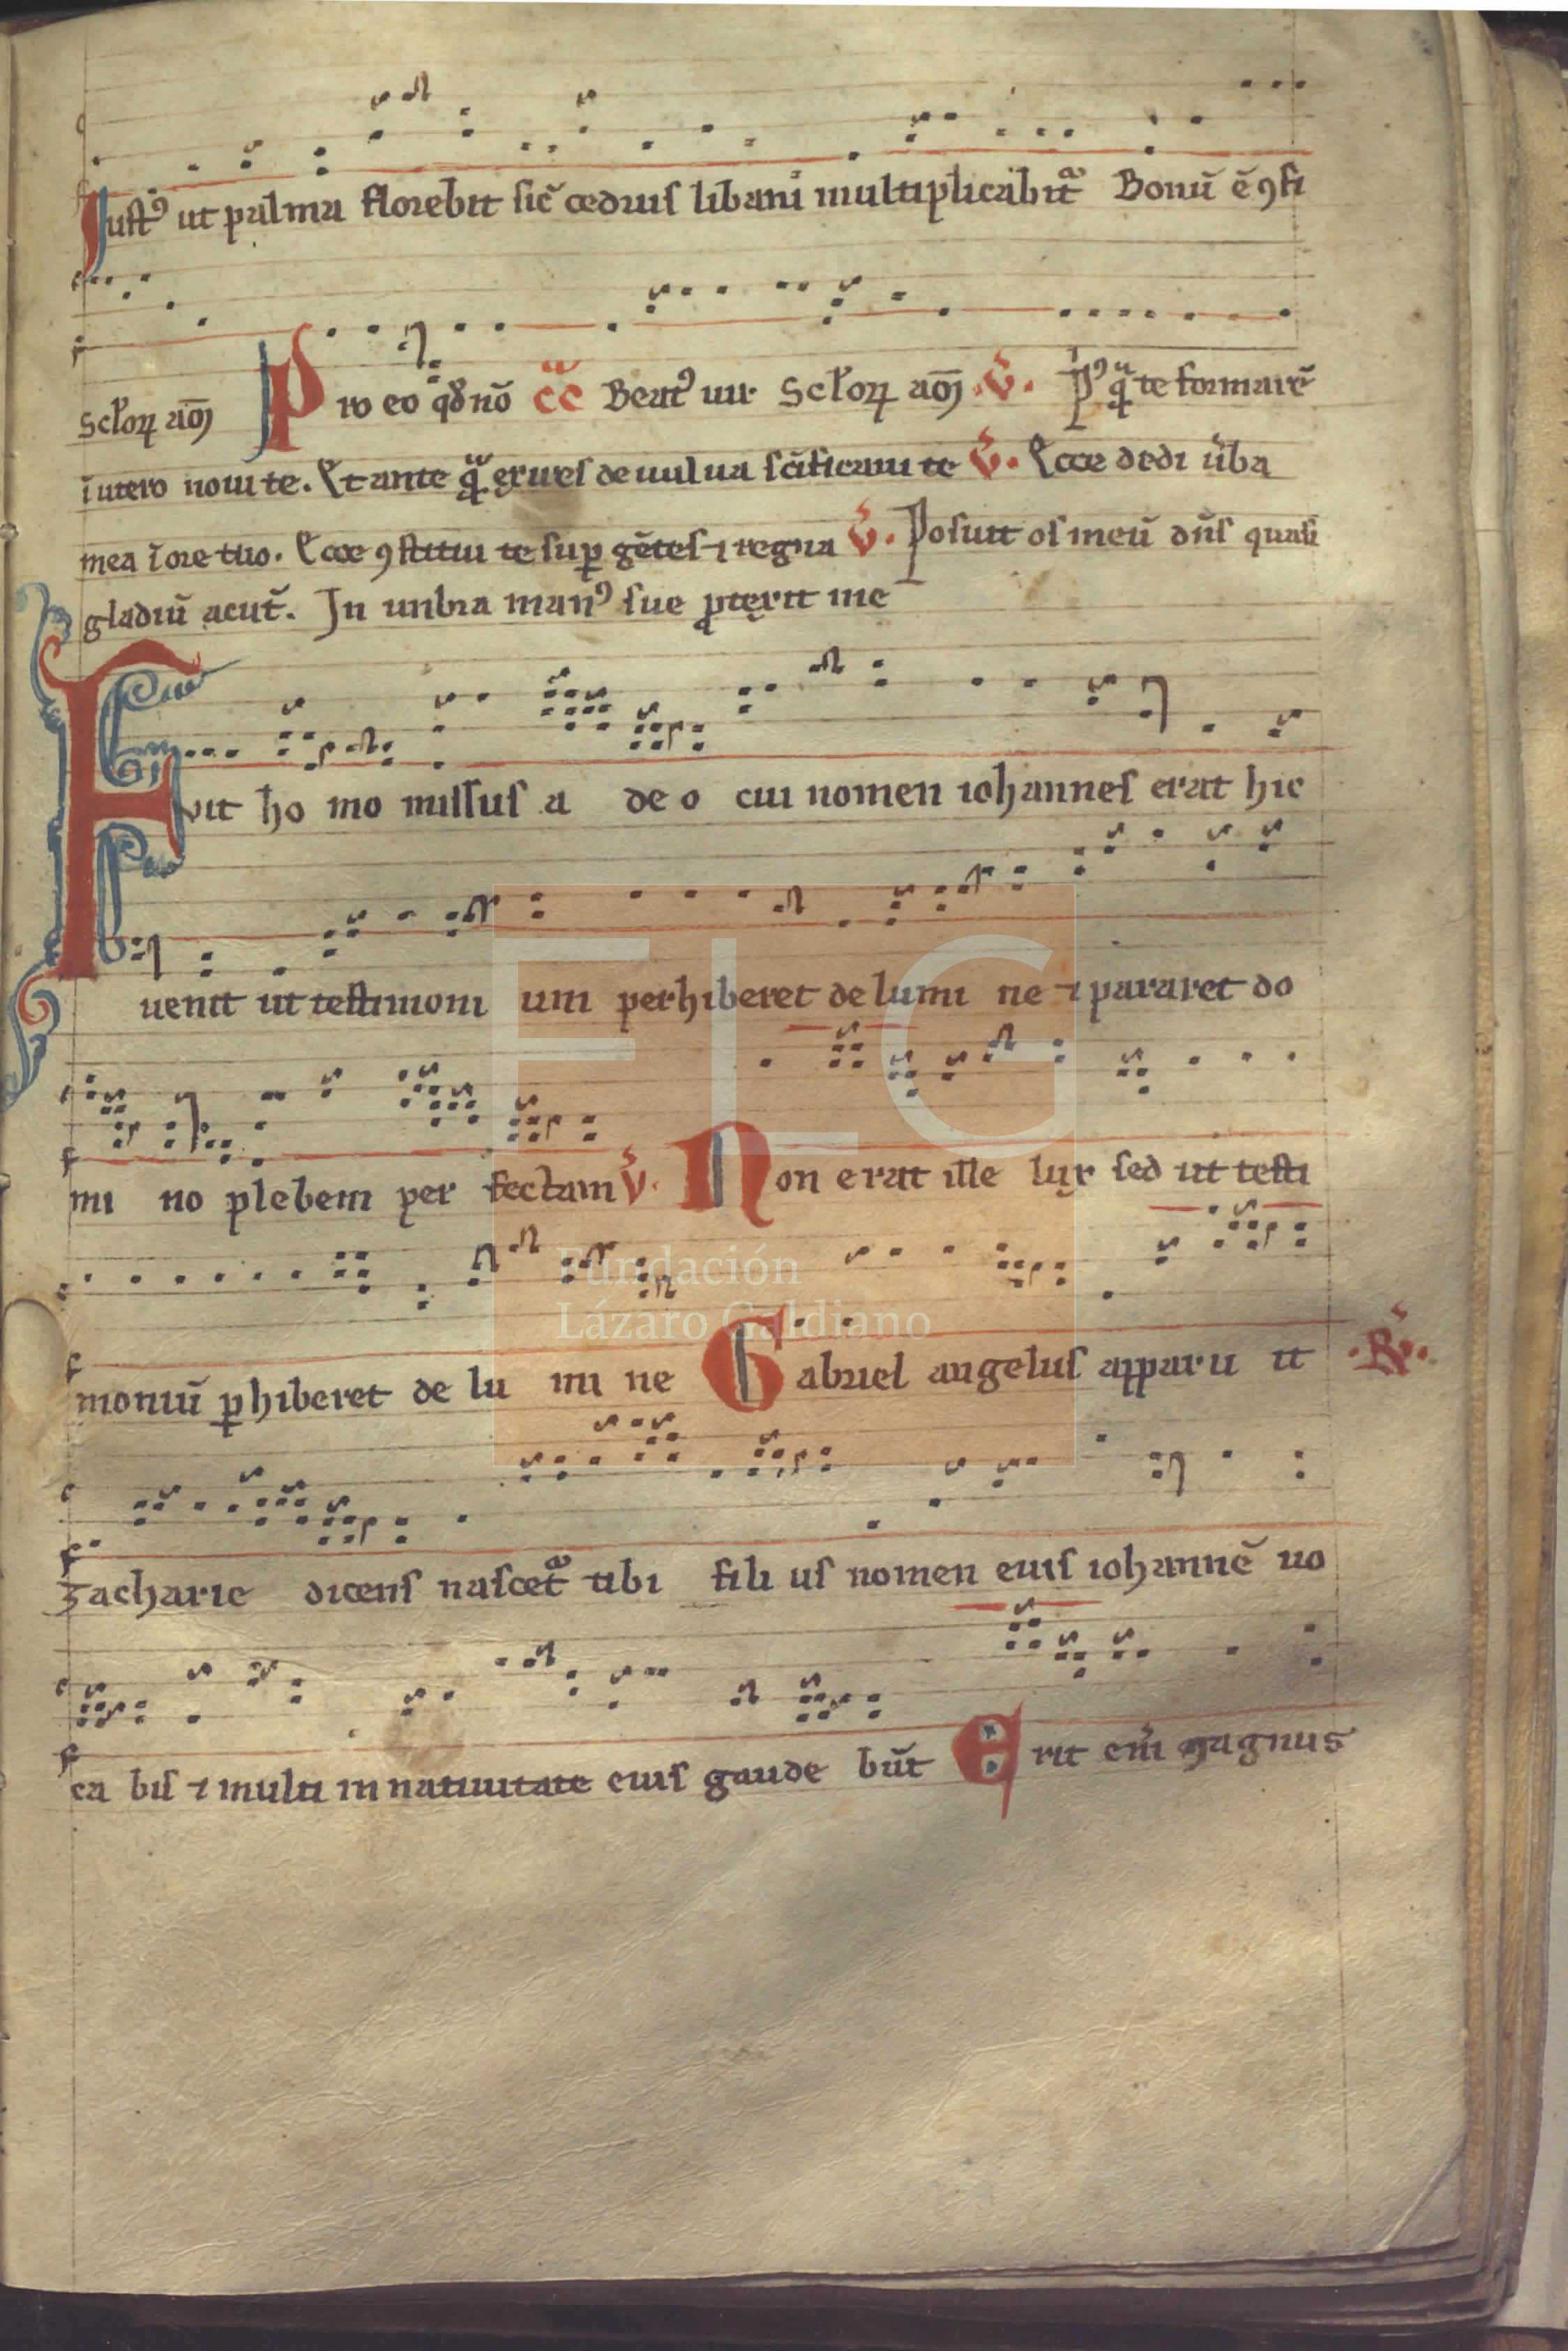 Iustꝰ ut palma florebit sic̄ cedrus libani multiplicabit᷑ Bonū ē ꝯfi
Sc̄loꝝ am̄ Pro eo qd̓ nō c̄c̄ Beatꝰ uir Sc̄loꝝ am̄ V̓. Pꝰqᷓ te formarē
ī utero noui te. Et ante qᷓ exires de uulua sc̄ificaui te V̓. Ecce dedi ũba
mea ī ore tuo. Ecce ꝯstitui te sup̱ gētes ⁊ regna V̓. Posuit os meū dn̄s quasi
gladiū acut̄. In unbra manꝰ sue ꝓtexit me
Fuit ho mo missus a de o cui nomen iohannes erat hic
uenit ut testimoni um perhiberet de lumi ne ⁊ pararet do
mi no plebem per fectam V̓. Non erat ille lux sed ut testi
moniū ꝑhiberet de lu mi ne Gabriel angelus apparu it .R̓.
Zacharie dicens nascet᷑ tibi fili us nomen eius iohannē uo
ca bis ⁊ multi in natiuitate eius gaude būt Erit eīm magnus
FLG
Fundación
Lázaro Galdiano